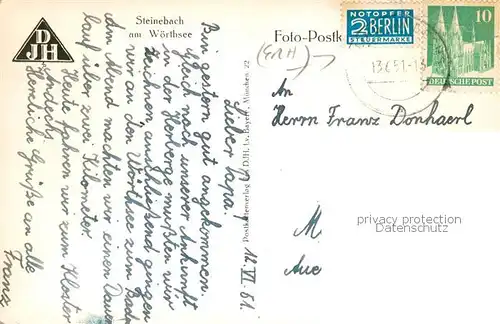 DJH
Steinbach
am Wörthsee
Foto-Postk
NOTOPFER
2 BERLIN
STEUERMARKE
10
DEUTSCHE POST
(ERH)
An
Herrn Franz Donhaerl
M
Aue
privacy protection
Datenschutz
Postkartenverlag des DJH. Lv. Bayern, München 22
12.VI.51.
Lieber Papa!
Bin gestern gut angekommen.
Gleich nach unserer Ankunft
in der Herberge mußten wir
zeichnen, anschließend gingen
wir an den Wörthsee zum Baden
Am Abend machten wir einen Dauer
lauf über zwei Kilometer.
Heute fahren wir zum Kloster
Herzliche Grüße an alle
Franz